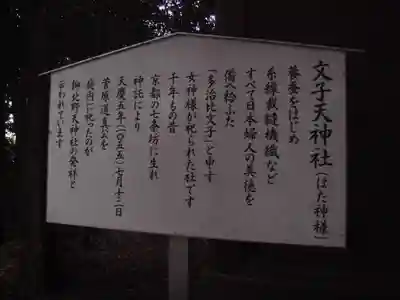 文子天神社（はた神様）
養蚕をはじめ
糸繰裁縫機織など
すべて日本婦人の美徳を
備へ給ふた
「多治比文子」と申す
女神様が祀られた社です
千年もの昔
京都の七条坊に生れ
神託により
天慶五年（一六五五）七月十二日
菅原道真公を
邸内に祀ったのが
北野天神社の発祥と
云われています